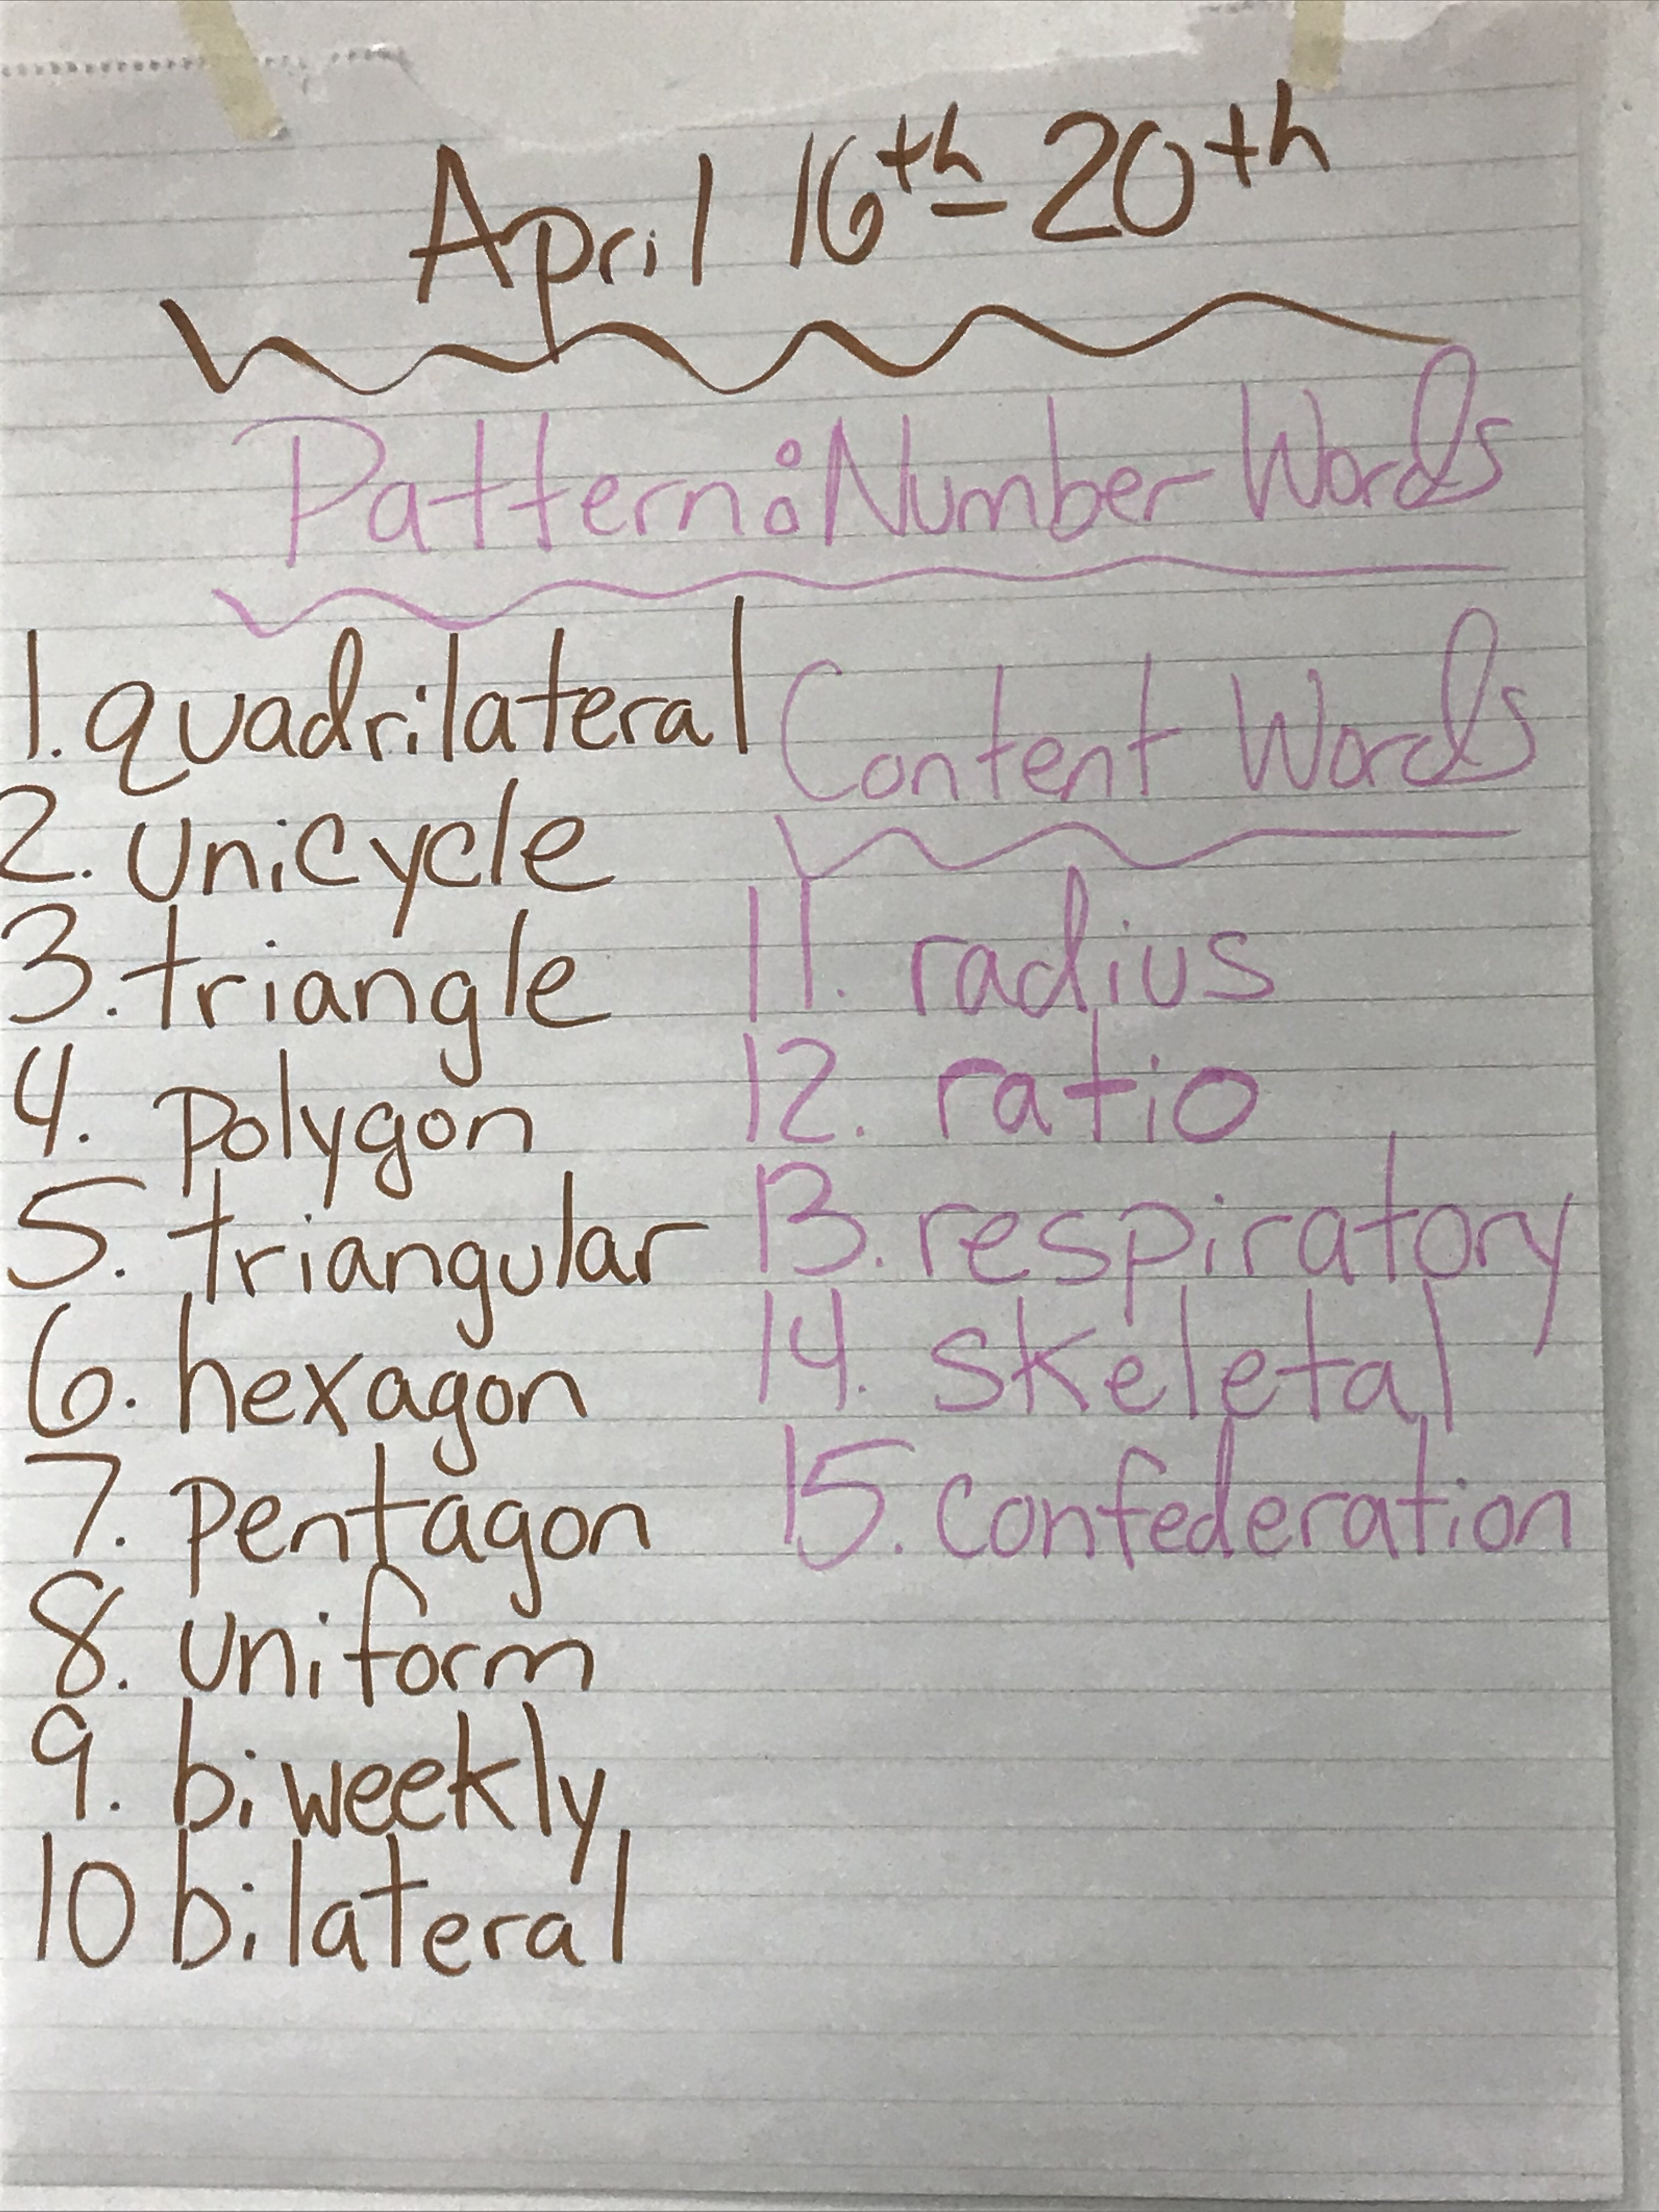 April 16th - 20th
Pattern: Number Words
1. quadrilateral
2. unicycle
3. triangle
4. polygon
5. triangular
6. hexagon
7. pentagon
8. uniform
9. biweekly
10 bilateral
Content Words
11. radius
12. ratio
13. respiratory
14. skeletal
15. confederation